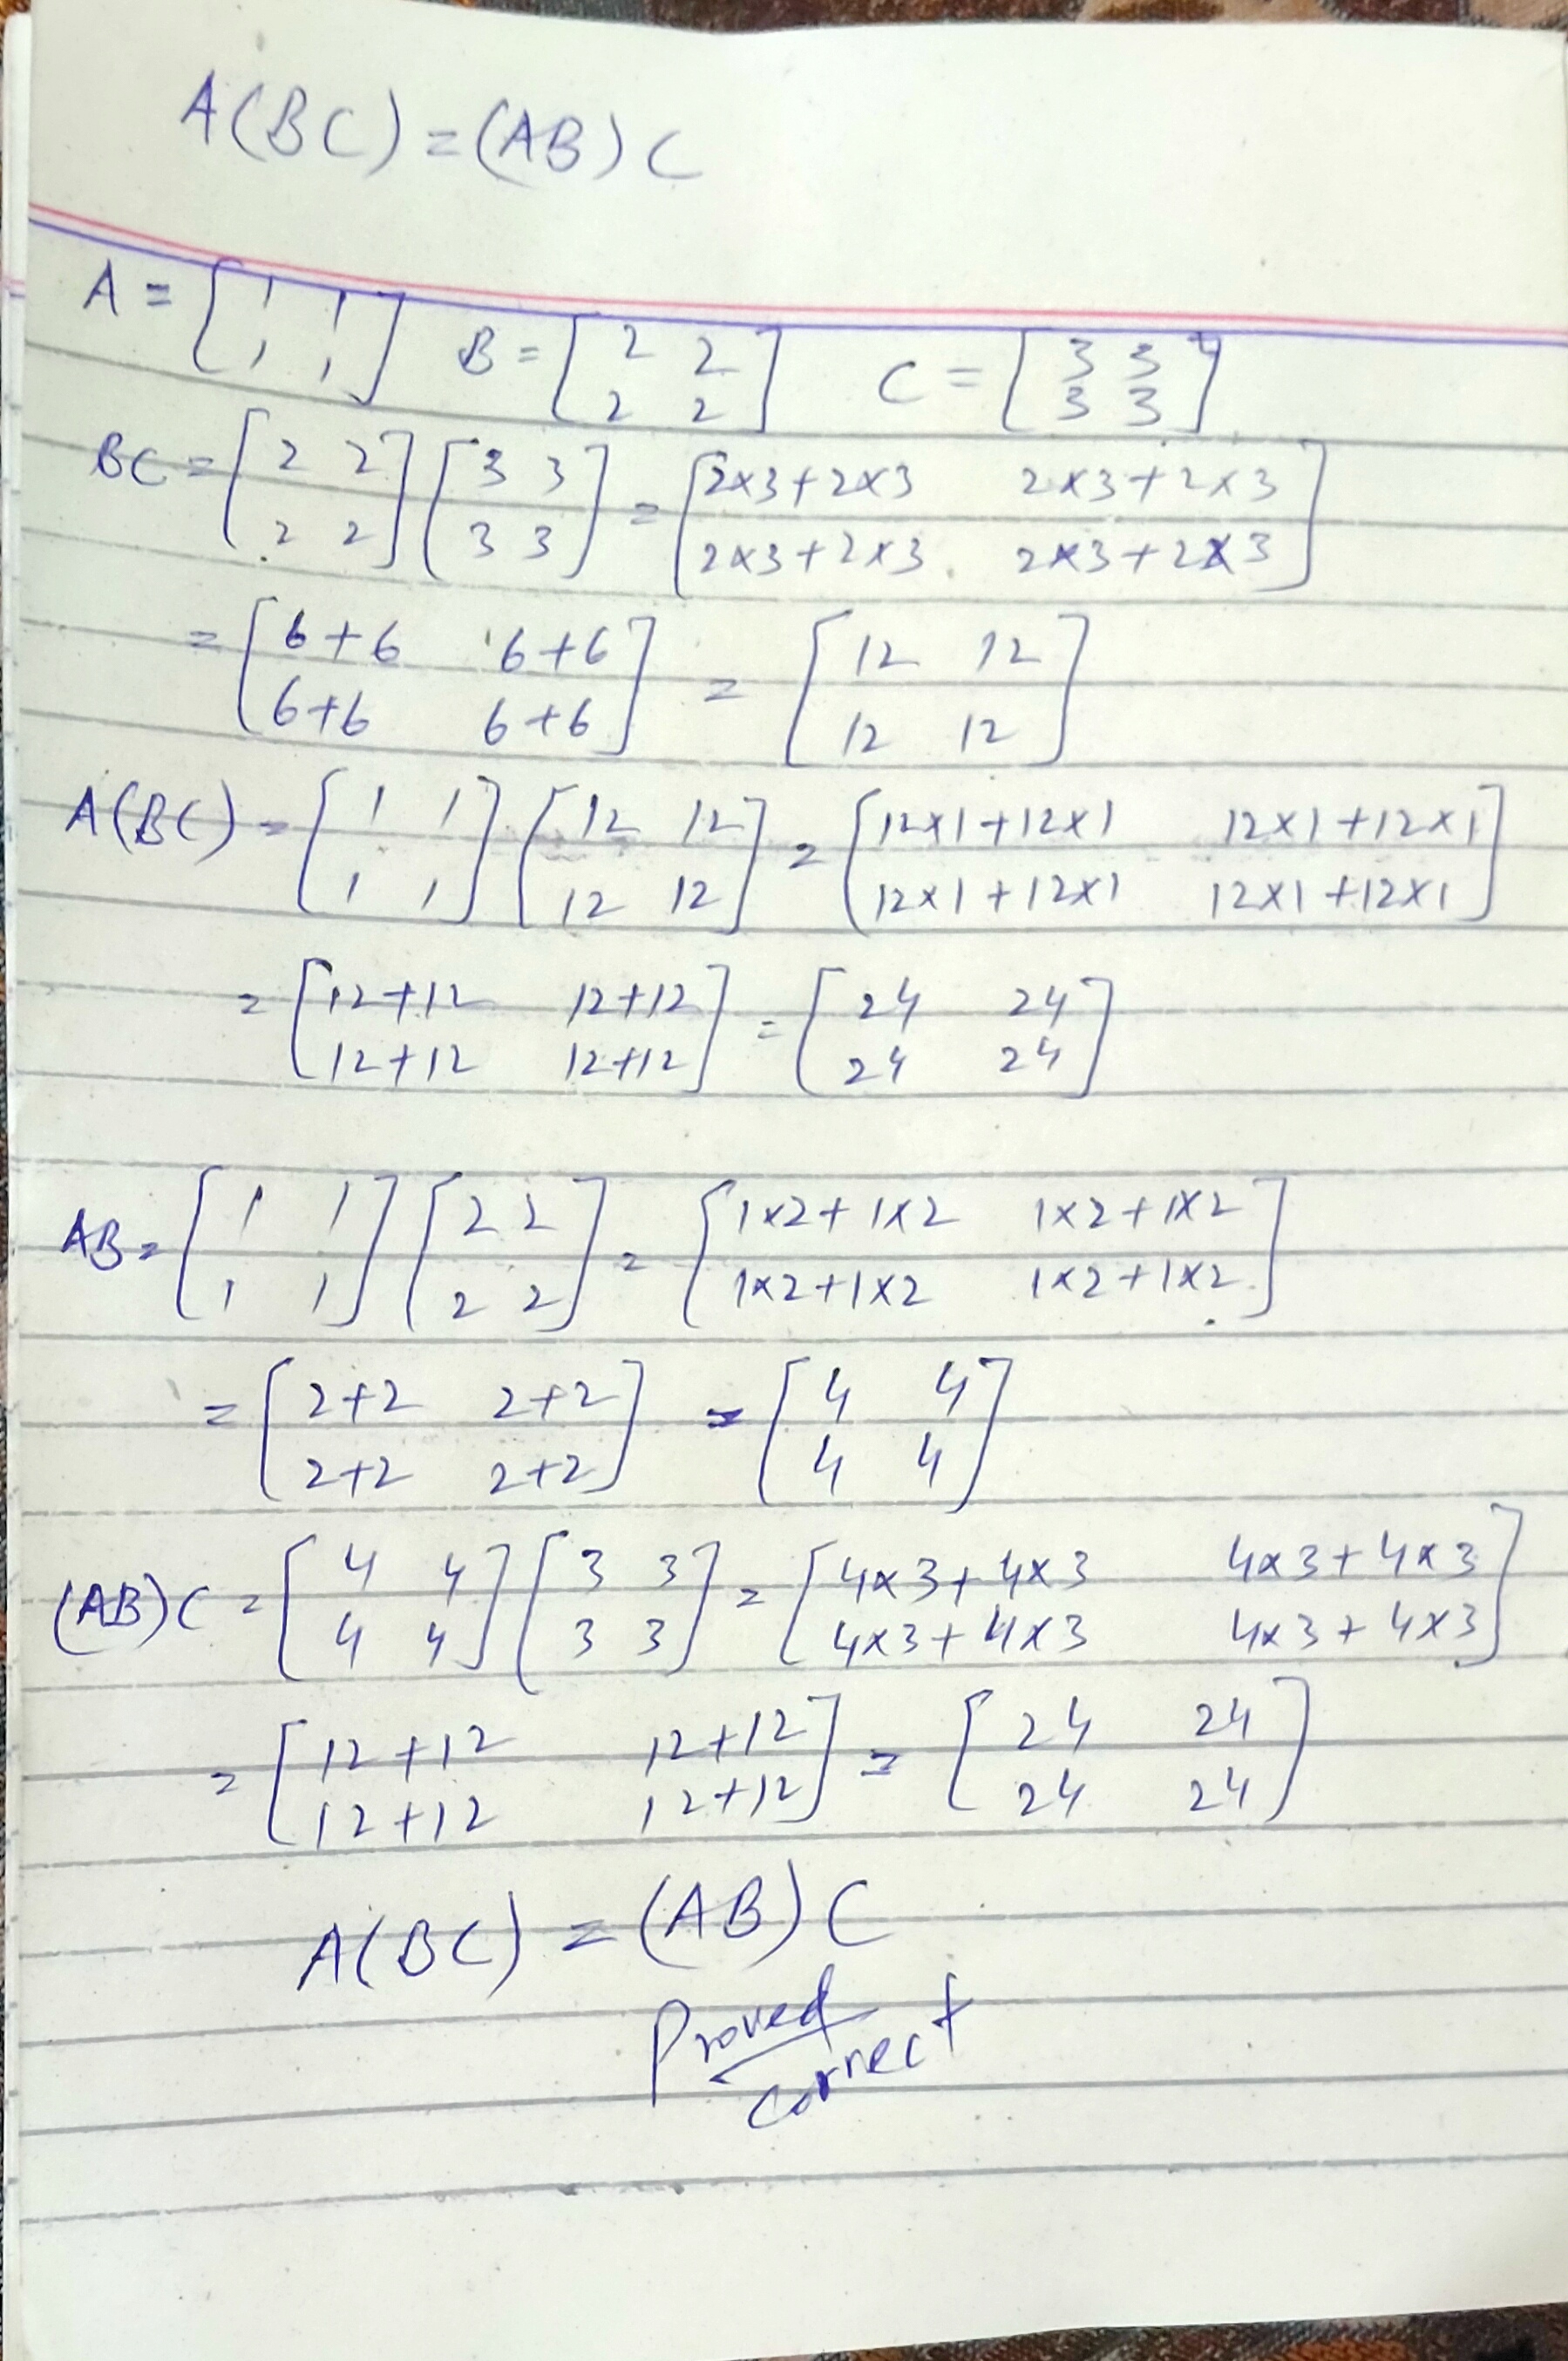 A(BC) = (AB)C
A = [1 1; 1 1] B = [2 2; 2 2] C = [3 3; 3 3]
BC = [2 2; 2 2] [3 3; 3 3] = [2×3+2×3 2×3+2×3; 2×3+2×3 2×3+2×3]
= [6+6 6+6; 6+6 6+6] = [12 12; 12 12]
A(BC) = [1 1; 1 1] [12 12; 12 12] = [12×1+12×1 12×1+12×1; 12×1+12×1 12×1+12×1]
= [12+12 12+12; 12+12 12+12] = [24 24; 24 24]
AB = [1 1; 1 1] [2 2; 2 2] = [1×2+1×2 1×2+1×2; 1×2+1×2 1×2+1×2]
= [2+2 2+2; 2+2 2+2] = [4 4; 4 4]
(AB)C = [4 4; 4 4] [3 3; 3 3] = [4×3+4×3 4×3+4×3; 4×3+4×3 4×3+4×3]
= [12+12 12+12; 12+12 12+12] = [24 24; 24 24]
A(BC) = (AB)C
Proved
correct